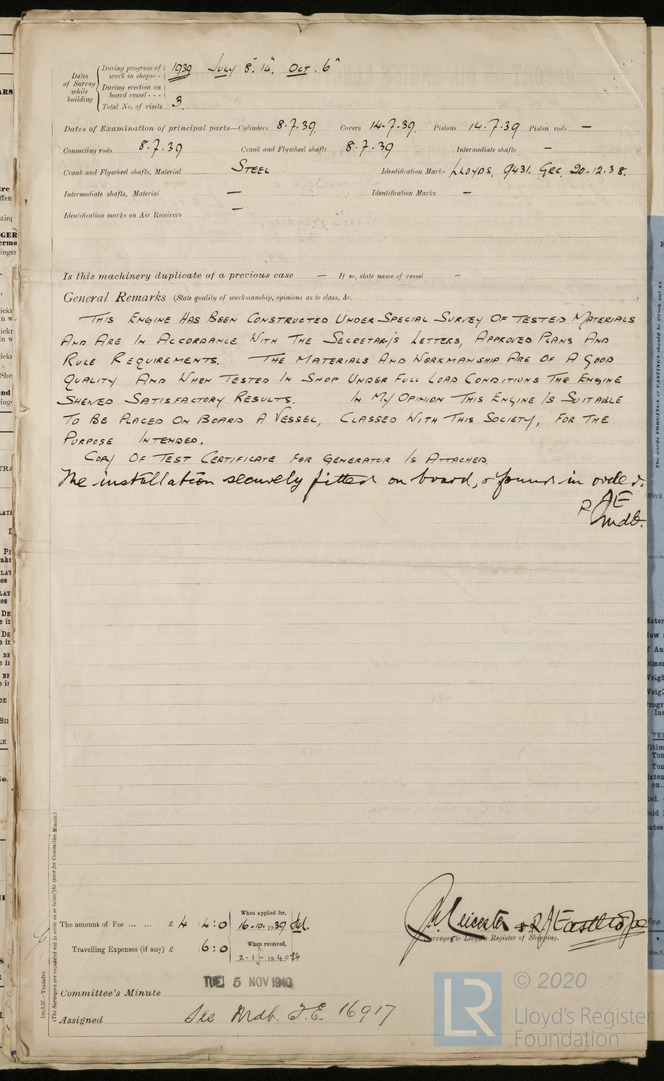 Dates of Survey while building
During progress of work in shops - - 1939 July 8th 14th Oct. 6th
During erection on board vessel - - -
Total No. of visits 3.
Dates of Examination of principal parts—Cylinders 8.7.39. Covers 14.7.39. Pistons 14.7.39 Piston rods —
Connecting rods 8.7.39 Crank and Flywheel shafts 8.7.39 Intermediate shafts —
Crank and Flywheel shafts, Material Steel Identification Marks Lloyds. 9431. GRC. 20.12.38.
Intermediate shafts, Material — Identification Marks —
Identification marks on Air Receivers —
Is this machinery duplicate of a previous case — If so, state name of vessel —
General Remarks (State quality of workmanship, opinions as to class, &c.
This Engine Has Been Constructed Under Special Survey Of Tested Materials
And Are In Accordance With The Secretary's Letters, Approved Plans And
Rule Requirements. The Materials And Workmanship Are Of A Good
Quality And When Tested In Shop Under Full Load Conditions The Engine
Shewed Satisfactory Results. In My Opinion This Engine Is Suitable
To Be Placed On Board A Vessel, Classed With This Society, For The
Purpose Intended.
Copy Of Test Certificate For Generator Is Attached.
The installation securely fitted on board, & found in order.
RJE
Mdb.
(The Surveyors are requested not to write on or below the space for Committee's Minute.)
The amount of Fee ... ... £ 4 : 4 : 0 When applied for, 16-10-1939
Travelling Expenses (if any) £ 6 : 0 When received, 2-1-1940
J. W. Leicester & R J Easthope
Surveyors to Lloyd's Register of Shipping.
TUE 5 NOV 1940
Committee's Minute
Assigned See Mdb. F.E. 16917
LR
© 2020
Lloyd's Register
Foundation